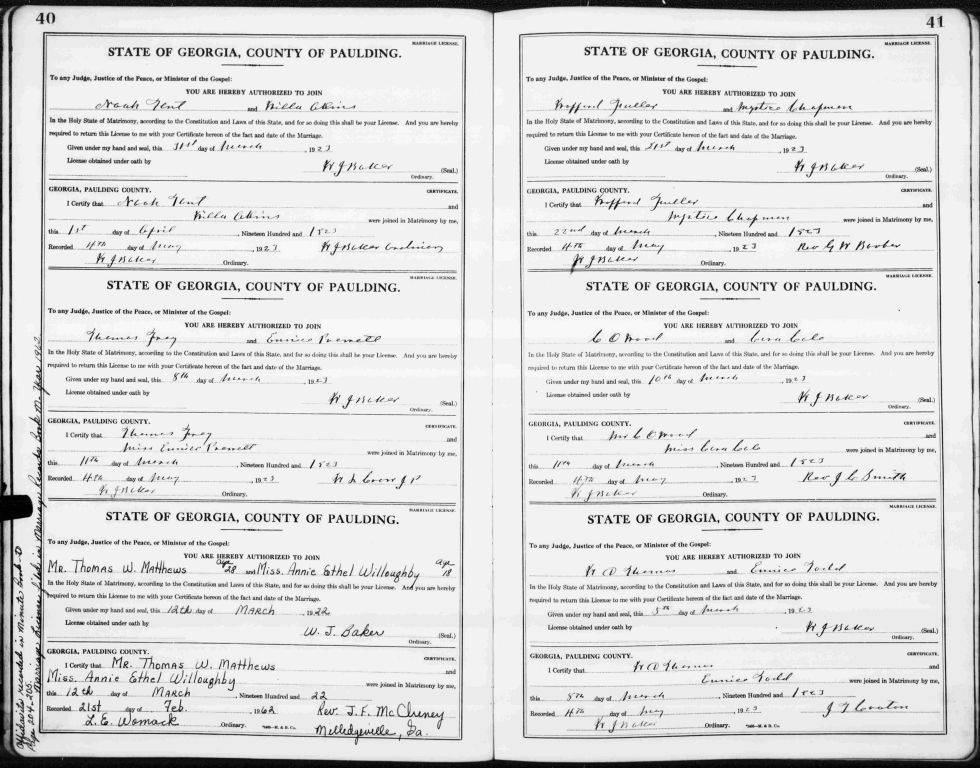 40
MARRIAGE LICENSE.
STATE OF GEORGIA, COUNTY OF PAULDING.
To any Judge, Justice of the Peace, or Minister of the Gospel:
YOU ARE HEREBY AUTHORIZED TO JOIN
Noah and Willa
In the Holy State of Matrimony, according to the Constitution and Laws of this State, and for so doing this shall be your License. And you are hereby
required to return this License to me with your Certificate hereon of the fact and date of the Marriage.
Given under my hand and seal, this 31st day of March, 1923
License obtained under oath by
W J Baker (Seal.)
Ordinary.
GEORGIA, PAULDING COUNTY. CERTIFICATE.
I Certify that Noah and
Willa were joined in Matrimony by me,
this 1st day of April, Nineteen Hundred and 1923
Recorded 4th day of May, 1923 W J Baker Ordinary
W J Baker Ordinary.
MARRIAGE LICENSE.
STATE OF GEORGIA, COUNTY OF PAULDING.
To any Judge, Justice of the Peace, or Minister of the Gospel:
YOU ARE HEREBY AUTHORIZED TO JOIN
Thomas and Eunice
In the Holy State of Matrimony, according to the Constitution and Laws of this State, and for so doing this shall be your License. And you are hereby
required to return this License to me with your Certificate hereon of the fact and date of the Marriage.
Given under my hand and seal, this 8th day of March, 1923
License obtained under oath by
W J Baker (Seal.)
Ordinary.
GEORGIA, PAULDING COUNTY. CERTIFICATE.
I Certify that Thomas and
Miss Eunice were joined in Matrimony by me,
this 11th day of March, Nineteen Hundred and 1923
Recorded 4th day of May, 1923 J P
W J Baker Ordinary.
MARRIAGE LICENSE.
STATE OF GEORGIA, COUNTY OF PAULDING.
To any Judge, Justice of the Peace, or Minister of the Gospel:
YOU ARE HEREBY AUTHORIZED TO JOIN
Mr. Thomas W. Matthews Age 28 and Miss. Annie Ethel Willoughby Age 18
In the Holy State of Matrimony, according to the Constitution and Laws of this State, and for so doing this shall be your License. And you are hereby
required to return this License to me with your Certificate hereon of the fact and date of the Marriage.
Given under my hand and seal, this 12th day of March, 1922
License obtained under oath by
W. J. Baker (Seal.)
Ordinary.
GEORGIA, PAULDING COUNTY. CERTIFICATE.
I Certify that Mr. Thomas W. Matthews and
Miss. Annie Ethel Willoughby were joined in Matrimony by me,
this 12th day of March, Nineteen Hundred and 22
Recorded 21st day of Feb. 1962 Rev. J. F. McCluney
L. E. Womack Ordinary. Milledgeville, Ga.
Affidavits recorded in Minute Book-O
Page 204-205.
41
MARRIAGE LICENSE.
STATE OF GEORGIA, COUNTY OF PAULDING.
To any Judge, Justice of the Peace, or Minister of the Gospel:
YOU ARE HEREBY AUTHORIZED TO JOIN
and Chapman
In the Holy State of Matrimony, according to the Constitution and Laws of this State, and for so doing this shall be your License. And you are hereby
required to return this License to me with your Certificate hereon of the fact and date of the Marriage.
Given under my hand and seal, this 21st day of March, 1923
License obtained under oath by
W J Baker (Seal.)
Ordinary.
GEORGIA, PAULDING COUNTY. CERTIFICATE.
I Certify that and
Chapman were joined in Matrimony by me,
this 22nd day of March, Nineteen Hundred and 1923
Recorded 4th day of May, 1923 Rev G W Barber
W J Baker Ordinary.
MARRIAGE LICENSE.
STATE OF GEORGIA, COUNTY OF PAULDING.
To any Judge, Justice of the Peace, or Minister of the Gospel:
YOU ARE HEREBY AUTHORIZED TO JOIN
C O Wood and Cole
In the Holy State of Matrimony, according to the Constitution and Laws of this State, and for so doing this shall be your License. And you are hereby
required to return this License to me with your Certificate hereon of the fact and date of the Marriage.
Given under my hand and seal, this 10th day of March, 1923
License obtained under oath by
W J Baker (Seal.)
Ordinary.
GEORGIA, PAULDING COUNTY. CERTIFICATE.
I Certify that Mr C O Wood and
Miss Cole were joined in Matrimony by me,
this 11th day of March, Nineteen Hundred and 1923
Recorded 4th day of May, 1923 Rev J C Smith
W J Baker Ordinary.
MARRIAGE LICENSE.
STATE OF GEORGIA, COUNTY OF PAULDING.
To any Judge, Justice of the Peace, or Minister of the Gospel:
YOU ARE HEREBY AUTHORIZED TO JOIN
Thomas and Eunice Todd
In the Holy State of Matrimony, according to the Constitution and Laws of this State, and for so doing this shall be your License. And you are hereby
required to return this License to me with your Certificate hereon of the fact and date of the Marriage.
Given under my hand and seal, this 5th day of March, 1923
License obtained under oath by
W J Baker (Seal.)
Ordinary.
GEORGIA, PAULDING COUNTY. CERTIFICATE.
I Certify that Thomas and
Eunice Todd were joined in Matrimony by me,
this 8th day of March, Nineteen Hundred and 1923
Recorded 4th day of May, 1923
W J Baker Ordinary.